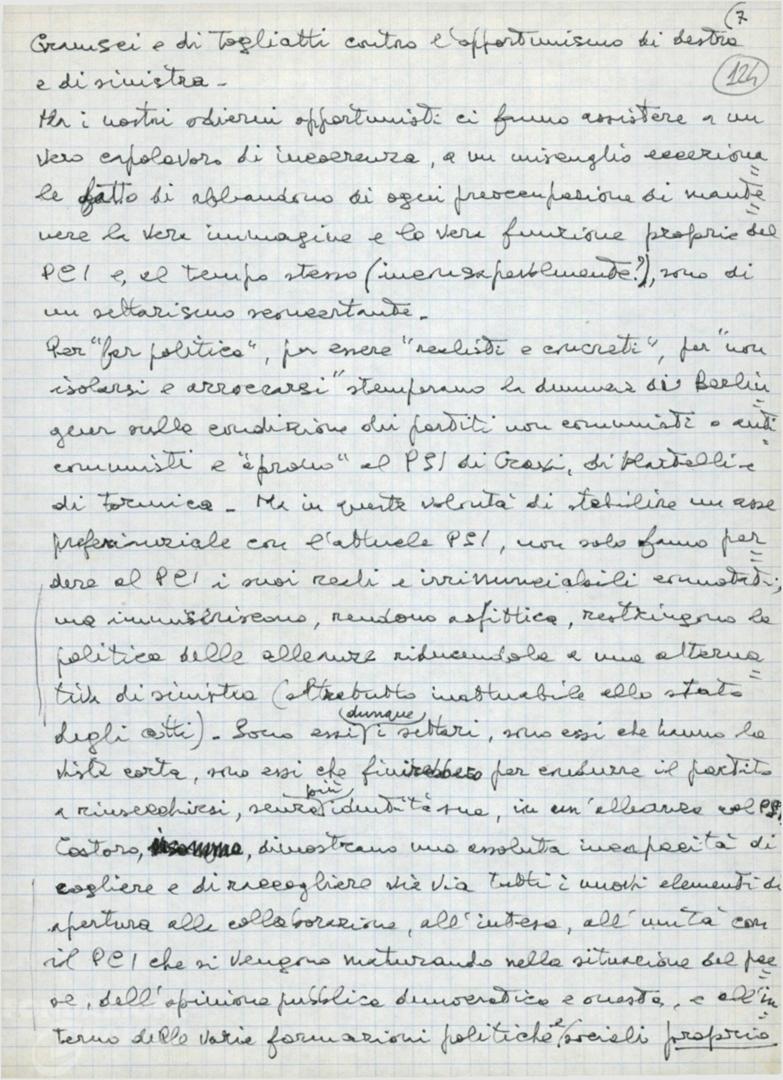 7
Gramsci e di Togliatti contro l'opportunismo di destra
124
e di sinistra -
Ma i nostri odierni opportunisti ci fanno assistere a un
vero capolavoro di incoerenza, a un miscuglio ecceziona
le fatto di abbandono di ogni preoccupazione di mante
nere la vera immagine e la vera funzione proprie del
PCI e, al tempo stesso (inconsapevolmente?), sono di
un settarismo sconcertante -
Per "far politica", per essere "realisti e concreti", per "non
isolarsi e arroccarsi" stemperano la denuncia di Berlin
guer sulla condizione dei partiti non comunisti o anti
comunisti e "aprono" al PSI di Craxi, di Martelli e
di Formica - Ma in questa volontà di stabilire un asse
preferenziale con l'attuale PSI, non solo fanno per
dere al PCI i suoi reali e irrinunciabili connotati,
ma immiseriscono, rendono asfittica, restringono la
politica delle alleanze riducendola a una alterna
tiva di sinistra (oltretutto inattuabile allo stato
degli atti) - Sono essi dunque i settari, sono essi che hanno la
vista corta, sono essi che finirebbero per condurre il partito
a rinsecchirsi, senza più identità sua, in un'alleanza col PSI,
Costoro, insomma, dimostrano una assoluta incapacità di
cogliere e di raccogliere via via tutti i nuovi elementi di
apertura alla collaborazione, all'intesa, all'unità con
il PCI che si vengono maturando nella situazione del pae
se, dell'opinione pubblica democratica e onesta, e all'in
terno delle varie formazioni politiche e sociali proprio